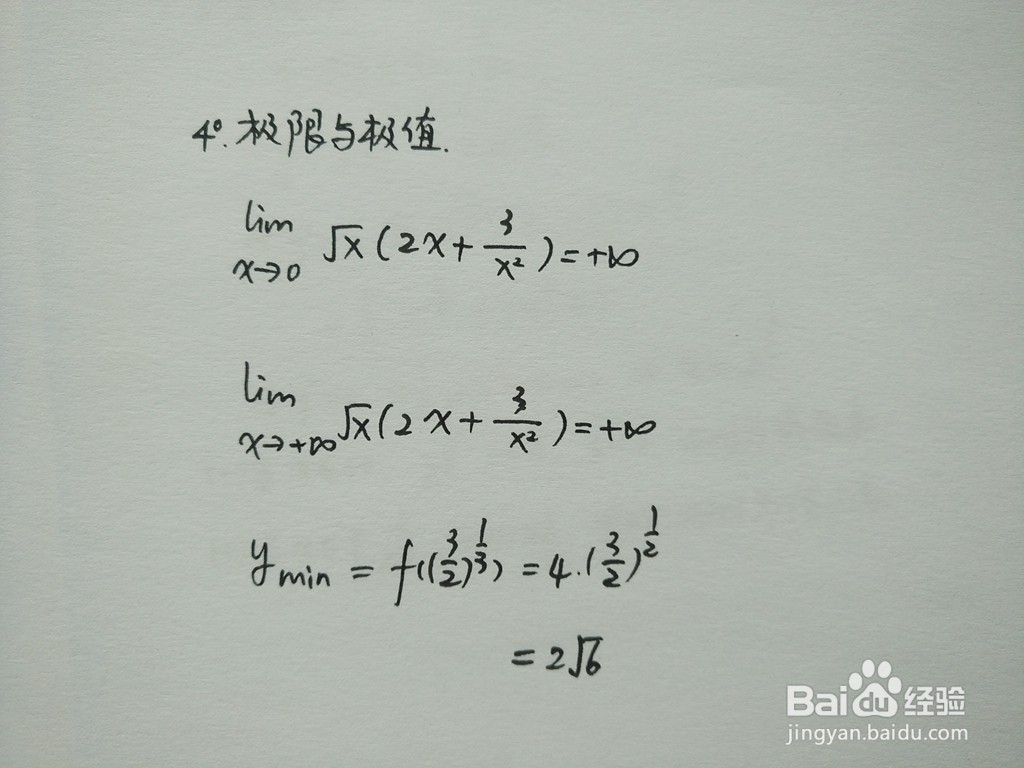 4°. 极限与极值.
lim x→0 √x(2x+3/x²)=+∞
lim x→+∞ √x(2x+3/x²)=+∞
y min = f((3/2)^1/3) = 4·(3/2)^1/2
= 2√6
Baidu 经验
jingyan.baidu.com